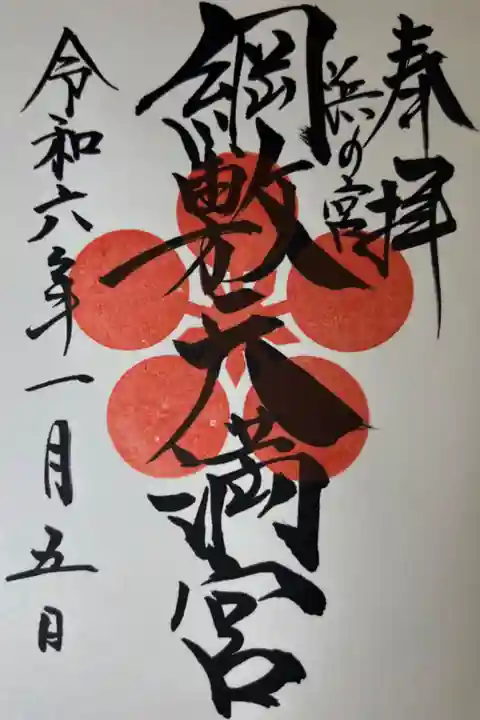 奉拝
浜の宮
綱敷天満宮
令和六年一月五日